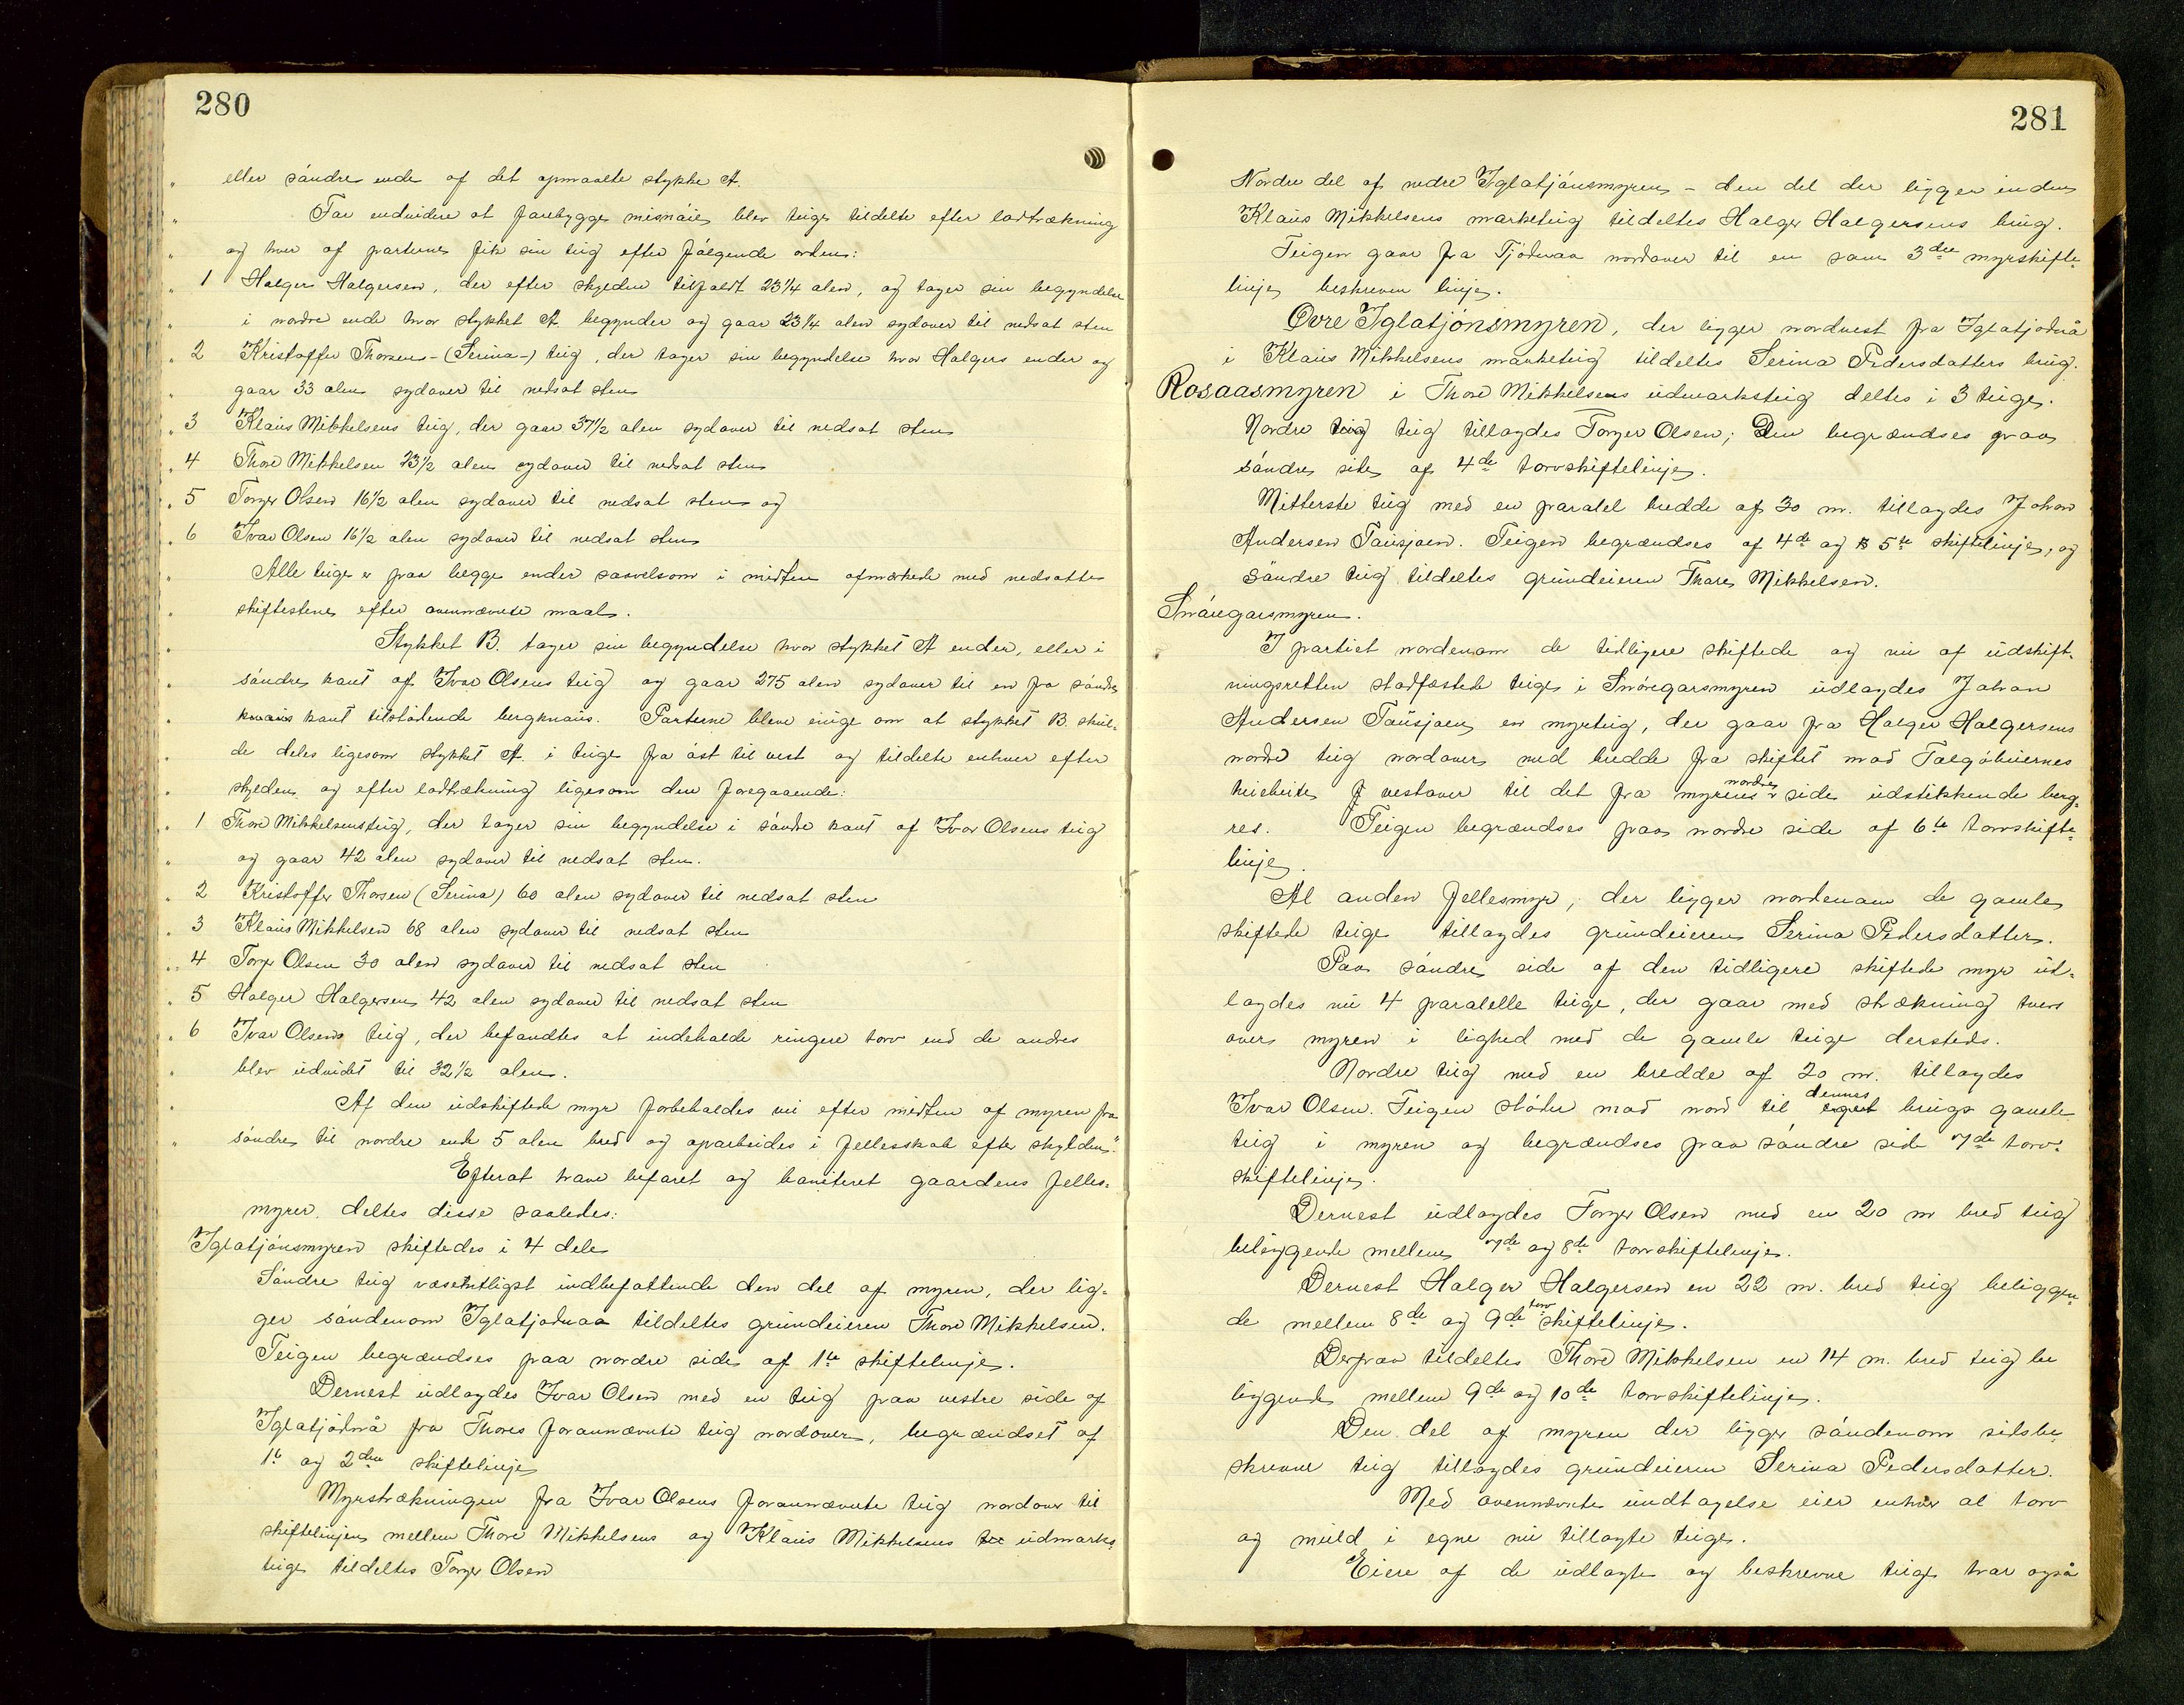 280
" eller søndre ende af det opmaalte stykke A.
" For endvidere at forebygge misnøie, blev teige tildelte efter lodtrækning
" og hver af parterne fik sin teig efter følgende orden:
" 1 Holger Holgersen, der efter skylden tilfaldt 23 1/4 alen, og tager sin begyndelse
" i nordre ende hvor stykket A. begynder og gaar 23 1/4 alen sydover til nedsat sten
" 2 Kristoffer Thorsens-(Serina-) teig, der tager sin begyndelse hvor Holgers ender og
" gaar 33 alen sydover til nedsat sten
" 3 Klaus Mikkelsens teig, der gaar 37 1/2 alen sydover til nedsat sten
" 4 Thore Mikkelsen 23 1/2 alen sydover til nedsat sten
" 5 Torger Olsen 16 1/2 alen sydover til nedsat sten og
" 6 Ivar Olsen 16 1/2 alen sydover til nedsat sten
" Alle teige er paa begge ender saavelsom i midten afmærkede med nedsatte
" skiftestene efter ovennævnte maal.
" Stykket B. tager sin begyndelse hvor stykket A ender, eller i
" søndre kant af Ivar Olsens teig og gaar 275 alen sydover til en fra søndre
" kant tilstødende bergknaus. Parterne bleve enige om at stykket B. skul-
" de deles ligesom stykket A. i teige fra øst til vest og tildelte enhver efter
" skylden og efter lodtrækning ligesom den foregaaende:
" 1 Thore Mikkelsens teig, der tager sin begyndelse i søndre kant af Ivar Olsens teig
" og gaar 42 alen sydover til nedsat sten.
" 2 Kristoffer Thorsen (Serina) 60 alen sydover til nedsat sten
" 3 Klaus Mikkelsen 68 alen sydover til nedsat sten
" 4 Torger Olsen 30 alen sydover til nedsat sten
" 5 Holger Holgersen 42 alen sydover til nedsat sten
" 6 Ivar Olsens teig, der befandtes at indeholde ringere torv end de andres
" blev udvidet til 32 1/2 alen.
" Af den udskiftede myr forbeholdes vei efter midten af myren fra
" søndre til nordre ende 5 alen bred og oparbeides i fellesskab efter skylden."
Efterat have befaret og boniteret gaardens felles-
myrer deltes disse saaledes:
Iglatjønsmyren skiftedes i 4 dele
Søndre teig væsentligst indbefattende den del af myren, der lig-
ger søndenom Iglatjødnaa tildeltes grundeieren Thore Mikkelsen.
Teigen begrændses paa nordre side af 1te skiftelinje.
Dernest udlagdes Ivar Olsen med en teig paa vestre side af
Iglatjødnå fra Thores forannævnte teig nordover, begrændset af
1te og 2den skiftelinje
Myrstrækningen fra Ivar Olsens forannævnte teig nordover til
skiftelinjen mellem Thore Mikkelsens og Klaus Mikkelsens udmarks-
teige tildeltes Torger Olsen
281
Nordre del af nedre Iglatjønsmyren - den del der ligger inden
Klaus Mikkelsens marketeig tildeltes Holger Holgersens brug.
Teigen gaar fra Tjødnaa nordover til en som 3die myrskifte-
linje beskreven linje.
Øvre Iglatjønsmyren, der ligger nordvest fra Iglatjødnå
i Klaus Mikkelsens marketeig tildeltes Serina Pedersdatters brug.
Rosaasmyren i Thore Mikkelsens udmarksteig deltes i 3 teige.
Nordre teig teig tillagdes Torger Olsen; Den begrændses paa
søndre side af 4de torvskiftelinje.
Mitterste teig med en paralel bredde af 30 m. tillagdes Johan
Andersen Tausjøen. Teigen begrændses af 4de og 5te skiftelinje, og
Søndre teig tildeltes grundeieren Thore Mikkelsen.
Snøregarsmyren.
I partiet nordenom de tidligere skiftede og nu af udskift-
ningsretten stadfæstede teige i Snøregarsmyren udlagdes Johan
Andersen Tausjøen en myrteig, der gaar fra Holger Holgersens
nordre teig nordover med bredde fra skiftet mod
vestover til det fra myrens nordre side udstikkende berg-
res. Teigen begrændses paa nordre side af 6te torvskifte-
linje.
Al anden fellesmyr, der ligger nordenom de gamle
skiftede teige tillagdes grundeieren Serina Pedersdatter.
Paa søndre side af den tidligere skiftede myr ud-
lagdes nu 4 paralelle teige, der gaar med strækning tvers
over myren i lighed med de gamle teige dersteds.
Nordre teig med en bredde af 20 m. tillagdes
Ivar Olsen. Teigen støder mod nord til dennes brugs gamle
teig i myren og begrændses paa søndre side 7de torv-
skiftelinje.
Dernest udlagdes Torger Olsen med en 20 m bred teig
beliggende mellem 7de og 8de torvskiftelinje.
Dernest Holger Holgersen en 22 m. bred teig beliggen-
de mellem 8de og 9de torvskiftelinje.
Derpaa tildeltes Thore Mikkelsen en 14 m. bred teig be
liggende mellem 9de og 10de torvskiftelinje.
Den del af myren der ligger søndenom sidstbe-
skrevne teig tillagdes grundeieren Serina Pedersdatter.
Med ovennævnte undtagelse eier enhver al torv
og muld i egne nu tillagte teige.
Eiere af de udlagte og beskrevne teige har også